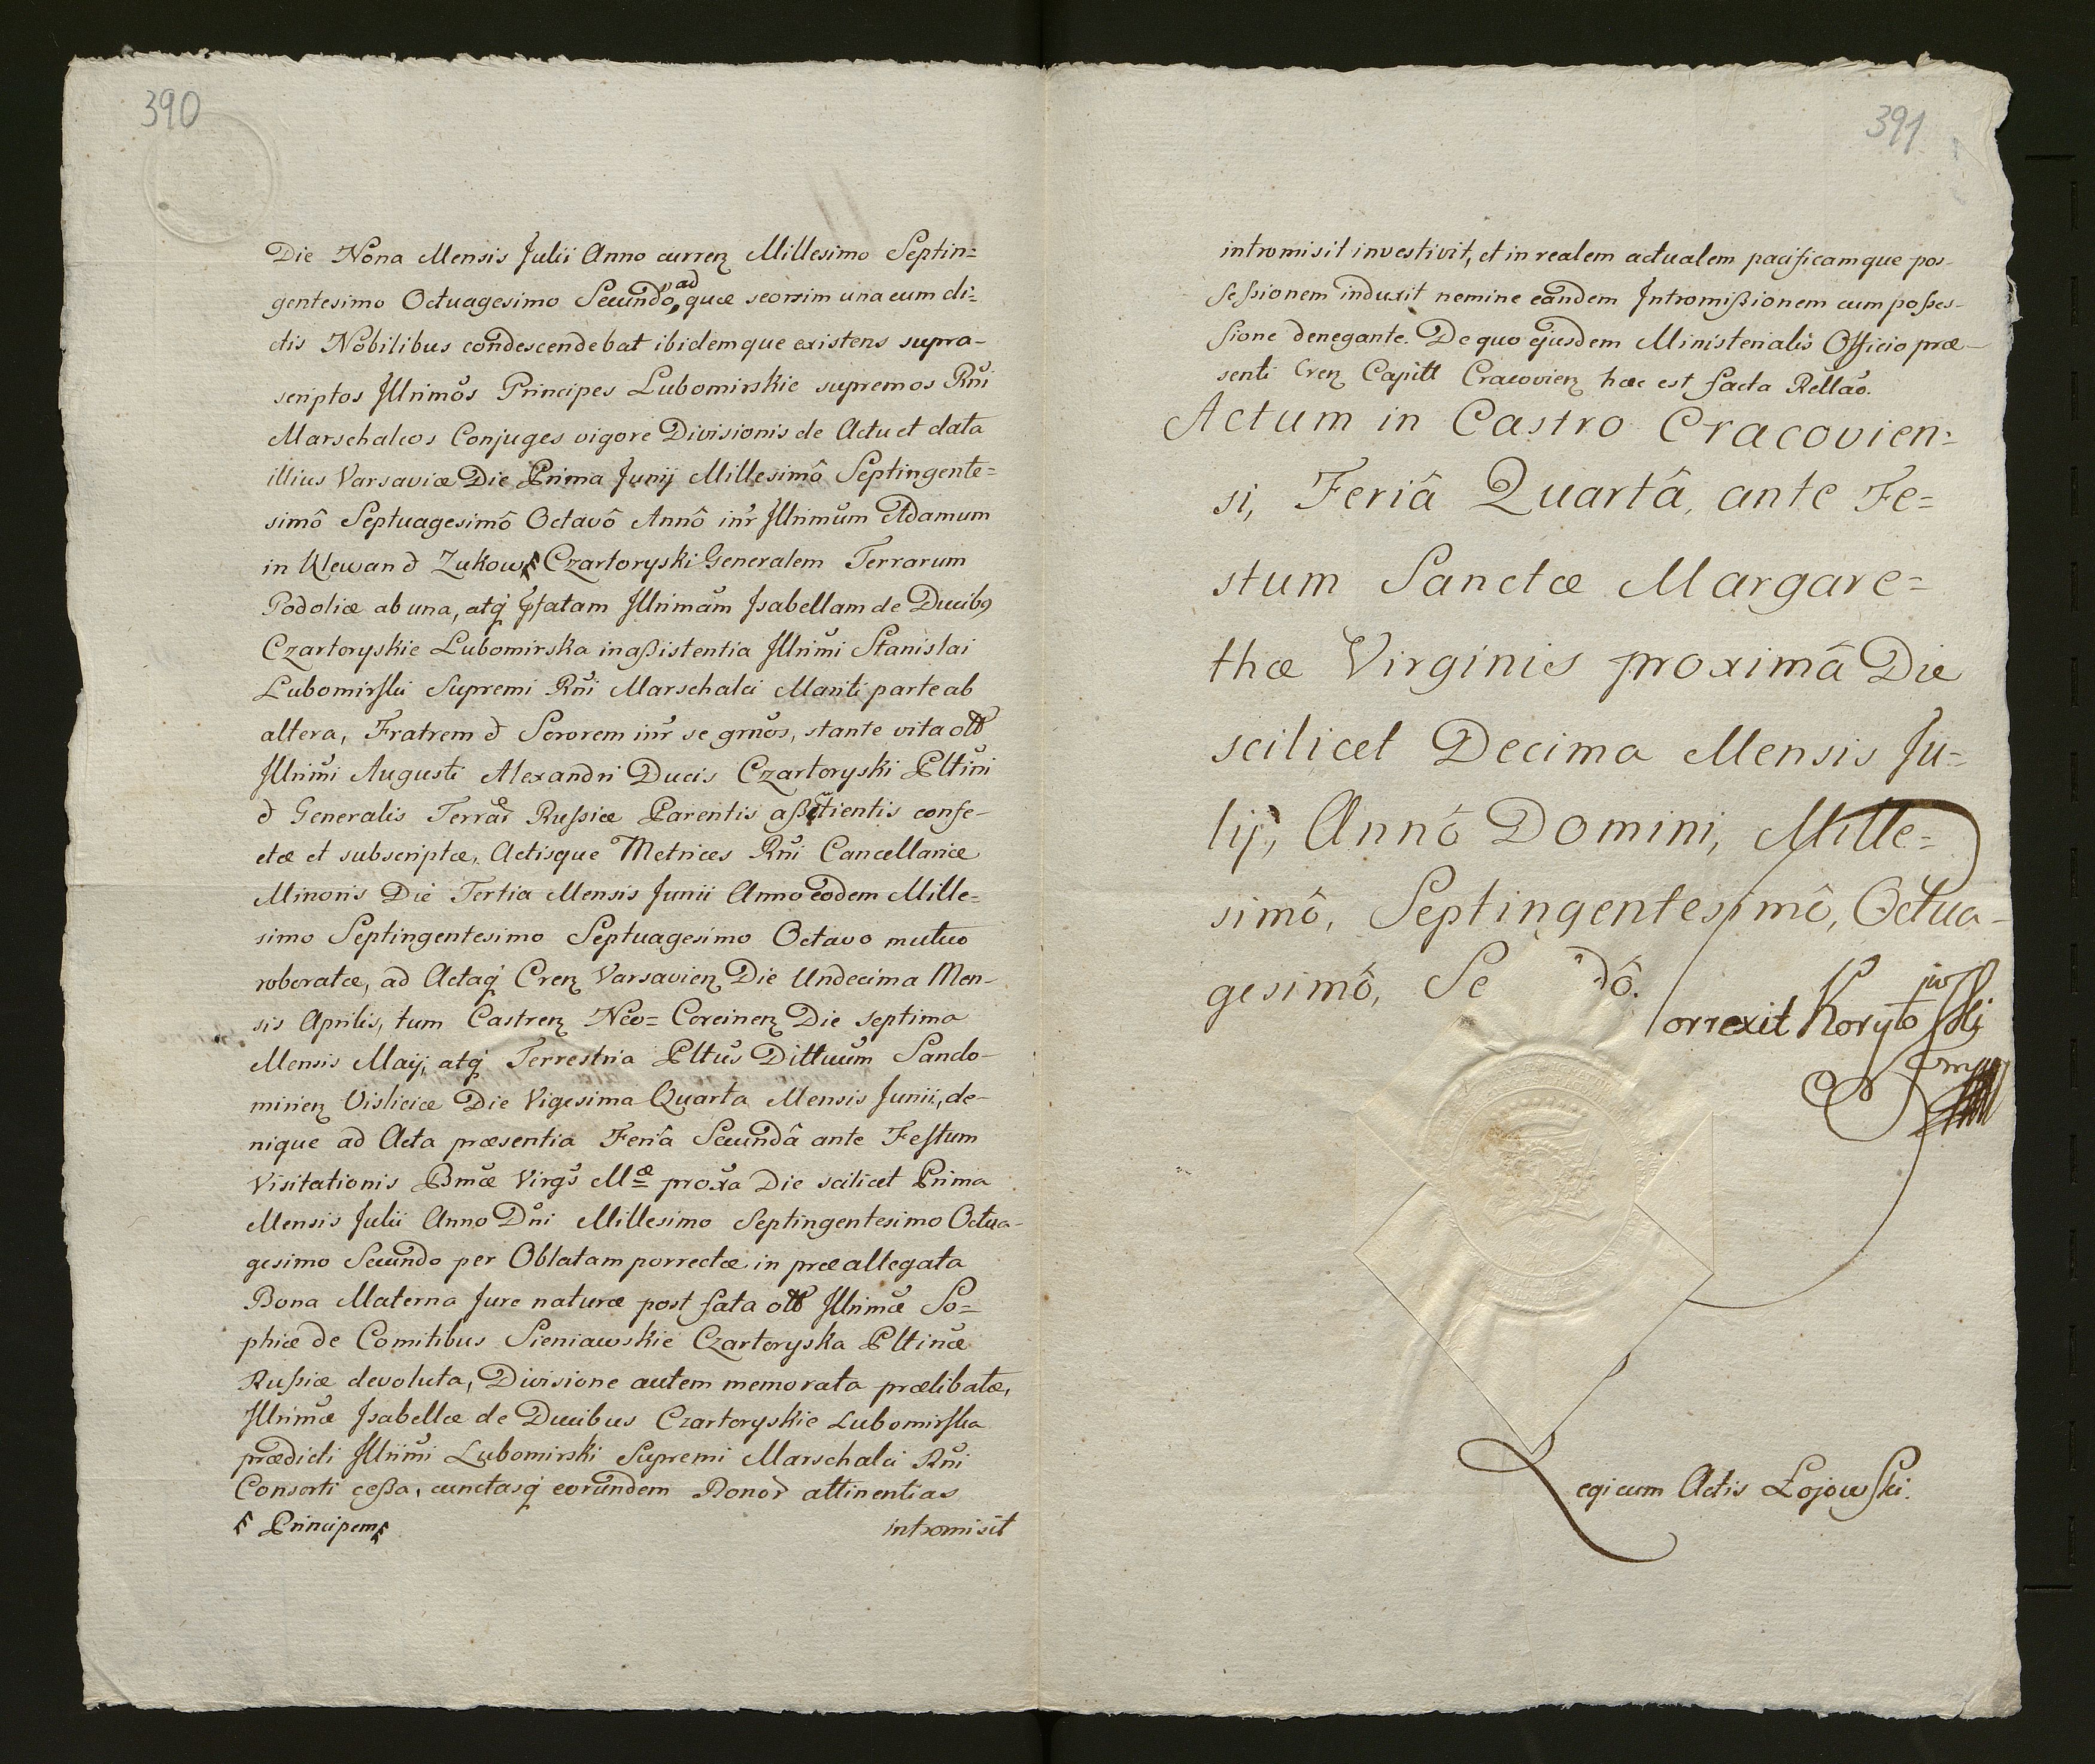 390
Die Nona Mensis Julii Anno curren Millesimo Septin=
gentesimo Octuagesimo Secundo, ad quæ seorsim una cum di=
ctis Nobilibus condescendebat ibidemque existens supra-
scriptos Illrimos Principes Lubomirskie supremos Rni
Marschalcos Conjuges vigore Divisionis de Actu et data
illius Varsaviæ Die Prima Junij Millesimô Septingente=
simô Septuagesimô Octavô Annô intr Illrimum Adamum
in Klewan & Zukow Czartoryski Generalem Terrarum
Podoliæ ab una, atq pfatam Illrimam Isabellam de Ducibq
Czartoryskie Lubomirska in aßistentia Illrimi Stanislai
Lubomirski Supremi Rni Marschalci Mariti parte ab
altera, Fratrem & Sororem intr se gmos, stante vita olt
Illrimi Augusti Alexandri Ducis Czartoryski Pltini
& Generalis Terrar Rußiæ Parentis aßetientis confe-
ctæ et subscriptæ, Actisque Metrices Rni Cancellariæ
Minoris Die Tertia Mensis Junii Anno eodem Mille=
simo Septingentesimo Septuagesimo Octavo mutuo
roboratæ, ad Actaq Cren Varsavien Die Undecima Men-
sis Aprilis, tum Castren Neo=Corcinen Die septima
Mensis Maij, atq Terrestria Pltus Dittuum Sando-
mirien Visliciæ Die Vigesima Quarta Mensis Junii, de-
nique ad Acta præsentia Feriâ Secundâ ante Festum
Visitationis Bmæ Virgs Mæ proxa Die scilicet Prima
Mensis Julii Anno Dni Millesimo Septingentesimo Octua-
gesimo Secundo per Oblatam porrectæ in præallegata
Bona Materna Jure naturæ post fata olt Illrimæ So=
phiæ de Comitibus Sieniawskie Czartoryska Pltinæ
Rußiæ devoluta, Divisione autem memorata prælibatæ,
Illrimæ Isabellæ de Ducibus Czartoryskie Lubomirska
prædicti Illrimi Lubomirski Supremi Marschalci Rni
Consorti ceßa, cunctasq eorundem Bonor attinentias
Principem
intromisit
391
intromisit investivit, et in realem actualem pacificamque pos-
seßionem induxit nemine eandem Intromißionem cum poßes-
sione denegante. De quo ejusdem Ministerialis Officio præ-
senti Cren Capitt Cracovien hæc est facta Rellao.
Actum in Castro Cracovien=
si, Feriâ Quartâ, ante Fe=
stum Sanctæ Margare=
thæ Virginis proximâ Die
scilicet Decima Mensis Ju=
lij, Annô Domini, Mille=
simô, Septingentesimô, Octua-
gesimô, Se dô.
Correxit Korytowski
mp
Legi cum Actis Łojowski.